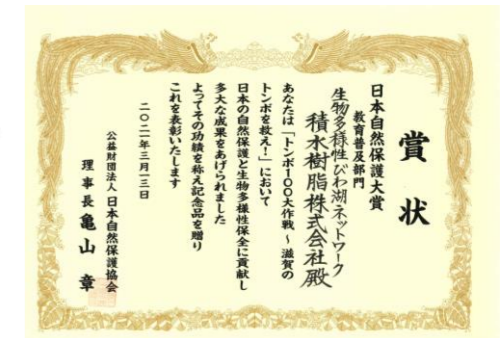 賞状
日本自然保護大賞
教育普及部門
生物多様性びわ湖ネットワーク
積水樹脂株式会社殿
あなたは「トンボ100大作戦～滋賀の
トンボを救え！」において
日本の自然保護と生物多様性保全に貢献し
多大な成果をあげられました
よってその功績を称え記念品を贈り
これを表彰いたします
二〇二一年三月一三日
公益財団法人 日本自然保護協会
理事長 亀山 章